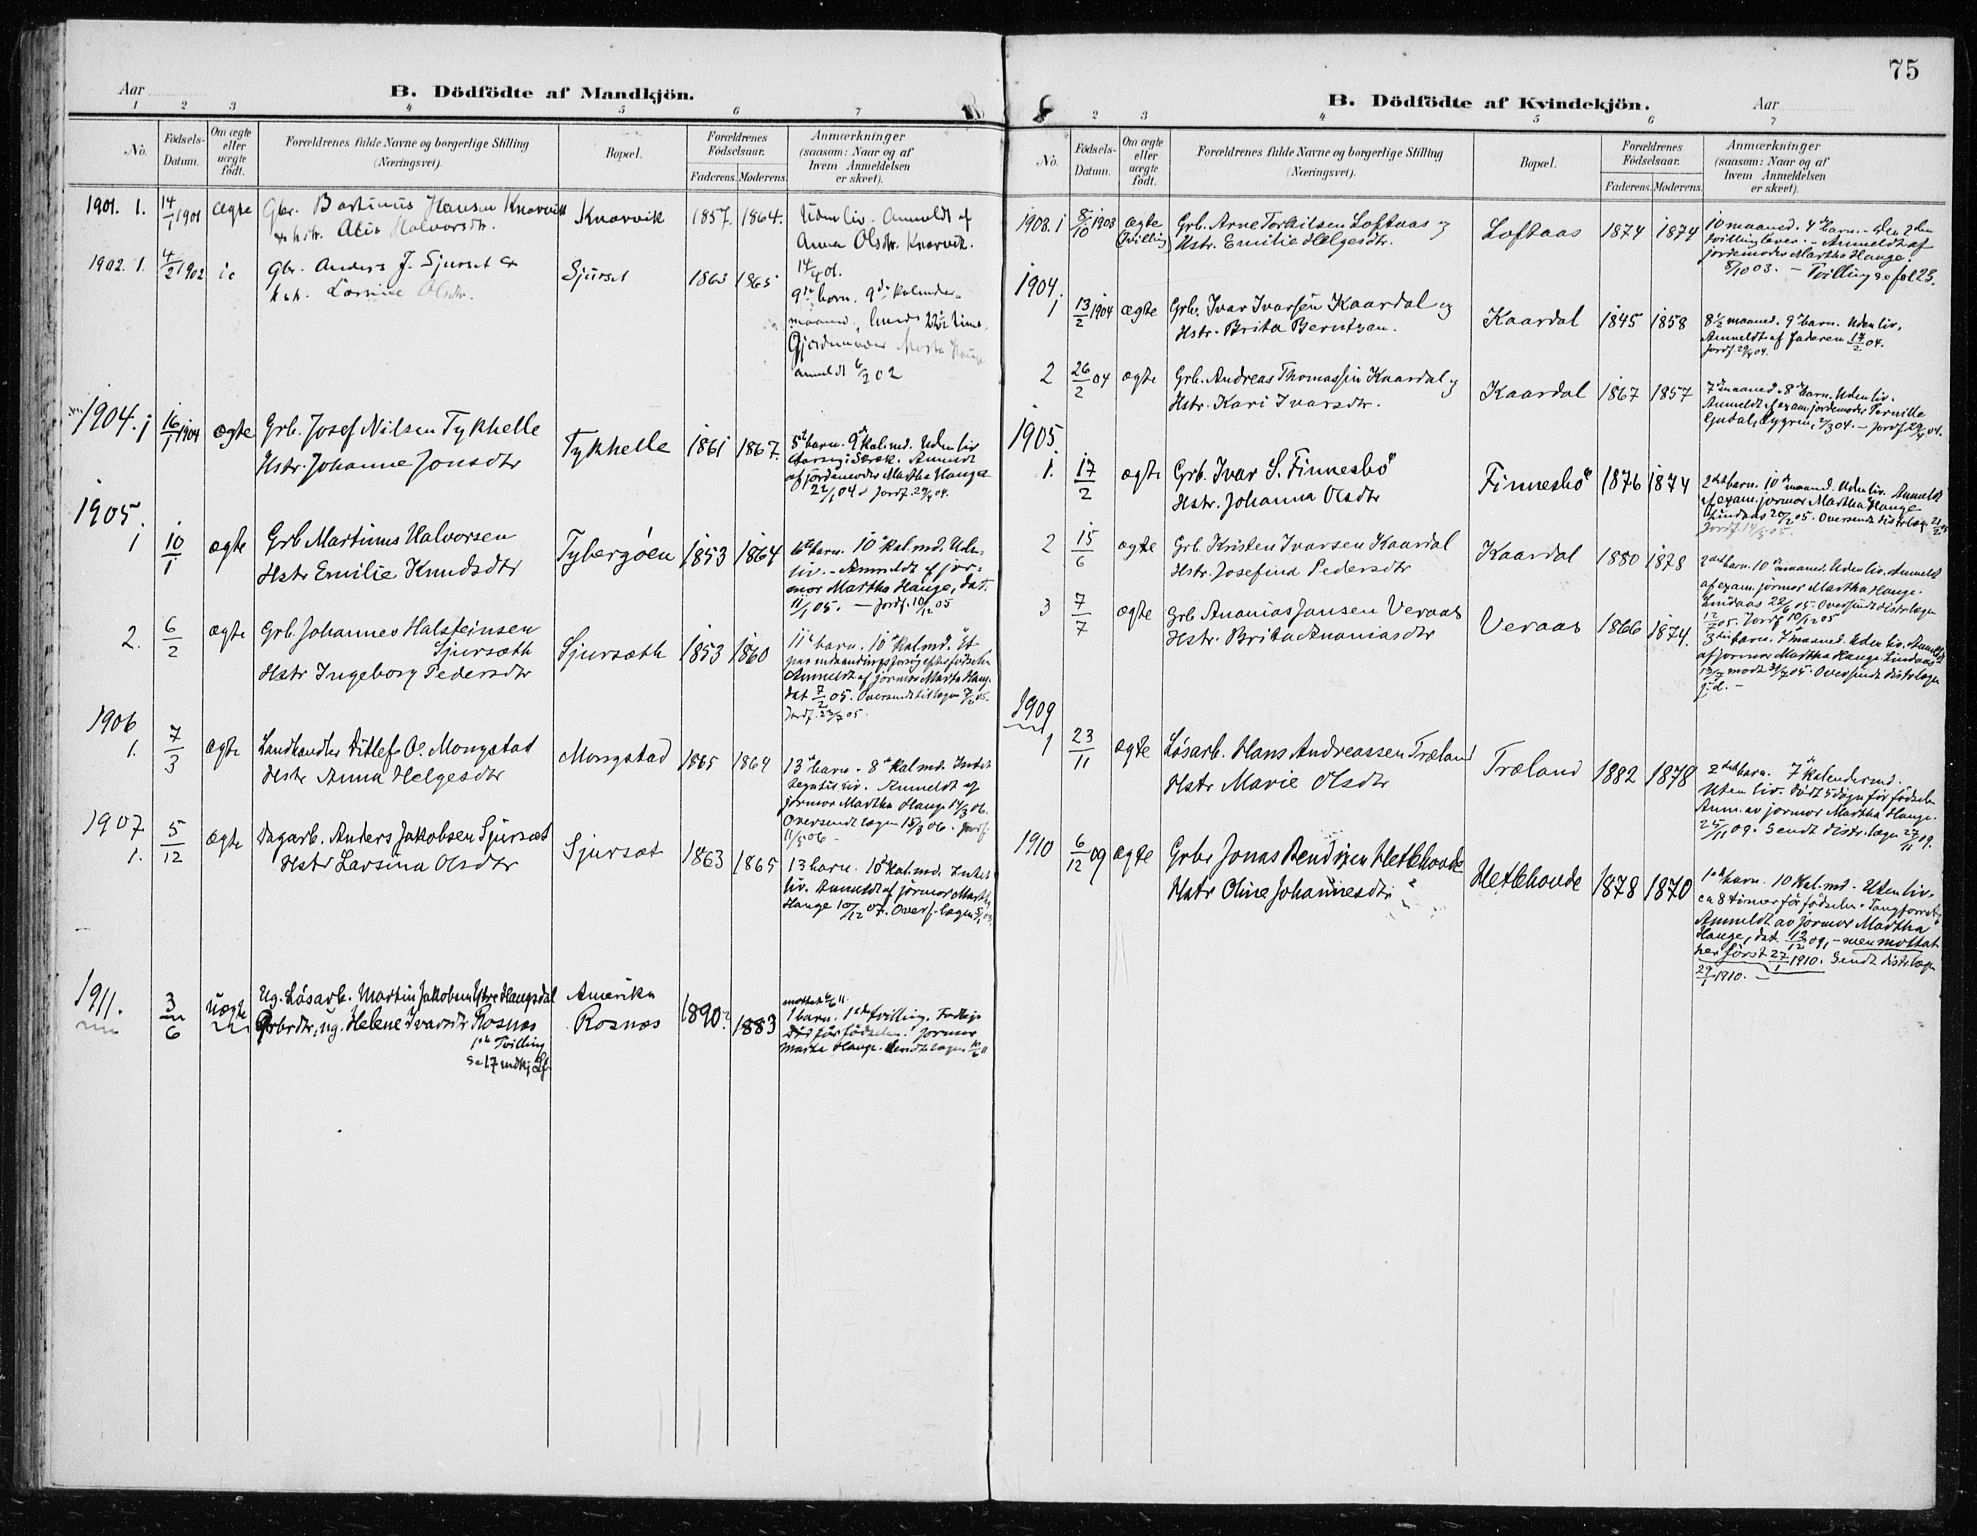 75
Aar
B. Dödfödte af Mandkjön.
1 2 3 4 5 6 7
No.
Födsels-Datum.
Om ægte eller uægte födt.
Forældrenes fulde Navne og borgerlige Stilling (Næringsvei).
Bopæl.
Forældrenes Födselsaar.
Faderens. Moderens.
Anmærkninger (saasom: Naar og af hvem Anmeldelsen er skeet).
1901. 1. 14/1 1901 Ægte Gbr. Bastinus Hansen Knarvik Knarvik 1857. 1864. Uden liv. Anmeldt af
Halvorsdtr. Anna Olsdtr. Knarvik.
1902. 1. 4/2 1902 Gbr. Anders J. Sjurset & Sjurset 1863 1865
Olsdtr. 9de barn. 9de kalender-
maaned,
anmeldt 6/2 02
1904. 1 16/1 1904 ægte Grb. Josef Nilsen Tykhelle Tykhelle 1861 1867. 5te barn. 9de kal.md. Uden liv
Hstr. Johanne Jonsdtr Anmeldt
af jordemoder Martha Hauge
22/1 04. Jordf. 29/4 04.
1905.
1 10/1 ægte Grb Martinus Halvorsen Tybergöen 1853 1864 6te barn. 10de kal. md. Uden
Hstr Emilie Knudsdtr liv. - Anmeldt af jor-
mor Martha Hauge, dat.
11/1 05. — Jordf. 10/12 05
2. 6/2 ægte Grb. Johannes Halsteinsen Sjursæth 1853 1860 11te barn. 10de Kal.md. Et
Sjursæth
Hstr Ingeborg Pedersdtr Anmeldt af jormor Marta Hauge
dat 7/2 05. Oversendt til lægen
1906
1. 7/3 ægte Landhandler Ditlef O. Mongstad Mongstad 1865 1864 13de barn. 8de Kal. md. Intet
Hstr Anna Helgesdtr tegn til liv. Anmeldt af
jormor Martha Hauge 14/3 06.
Oversendt lægen 15/3 06. Jordf.
11/5 06 -
1907
1. 5/12 ægte Dagarb. Anders Jakobsen Sjursæt Sjursæt 1863 1865 13 barn. 10de Kal. md. Intet
Hstr Larsina Olsdtr liv. Anmeldt af jormor Martha
Hauge 10/12 07. Overs. lægen
1911. 3/6 uægte Ug. Løsarb. Martin Jakobsen Ystre Haugsdal Amerika 1890? mottat 6/6 11.
Grbrdtr, ug. Helene Ivarsdtr Rosnæs Rosnæs 1883 1 barn. 1ste tvilling.
1ste Tvilling Död för födselen. Jormor
Se 17 mdkj. Lf. Marta Hauge. Sendt lægen 10/6 11
B. Dödfödte af Kvindekjön.
Aar
2 3 4 5 6 7
No.
Födsels-Datum.
Om ægte eller uægte födt.
Forældrenes fulde Navne og borgerlige Stilling (Næringsvei).
Bopæl.
Forældrenes Födselsaar.
Faderens. Moderens.
Anmærkninger (saasom: Naar og af hvem Anmeldelsen er skeet).
1903. 1 8/10 1903 ægte Grb. Arne Torkilsen Loftaas og Loftaas 1874 1874 10 maaned. 4de barn. - Den 2den
(Tvilling) Hstr. Emilie Helgesdtr. tvilling lever. - Anmeldt af
jordemoder Martha Hauge.
8/10 03. - Tvilling se fol 23.
1904.
1 13/2 1904 ægte Grb. Ivar Ivarsen Kaardal og Kaardal 1845 1858 8 1/2 maaned. 9de barn. Uden liv.
Hstr. Brita Berntsen. Anmeldt af faderen 14/2 04.
Jordf. 29/4 04.
2 26/2 04 ægte Grb. Andreas Thomassen Kaardal og Kaardal 1867 1857 7de maaned. 8de barn. Uden liv.
Hstr. Kari Ivarsdtr. Anmeldt af exam. jordemoder Pernille
Jordf. 29/4 04.
1905.
1. 17/2 ægte Grb. Ivar S. Finnesbö Finnesbö 1876 1874 2det barn. 10de maaned. Uden liv. Anmeldt
Hstr. Johanna Olsdtr af exam. jormor Martha Hauge
Lindaas 20/2 05. Oversendt distr.læg.
2 15/6 ægte Grb. Kristen Ivarsen Kaardal Kaardal 1880 1878 2det barn. 10de maaned. Uden liv. Anmeldt
Hstr. Josefina Pedersdtr af exam. jormor Martha Hauge.
Lindaas 22/6 05. Oversendt distr.lægen
12/7 05. Jordf 10/12 05
3 7/7 ægte Grb Ananias Jansen Veraas Veraas 1866 1874. 3die barn. 7de maaned. Uden liv. Anmeldt
Hstr. Brita Ananiasdtr af jormor Martha Hauge Lindaas
12/7 modt 31/7 05. Oversendt distr.lægen
s. d. -
1909
1 23/11 ægte Løsarb. Hans Andreassen Træland Træland 1882 1878 2det barn. 7de Kalendermd.
Hstr Marie Olsdtr Uten liv. Dödt 5 dögn för födselen
Anm. av jormor Martha Hauge.
25/11 09. Sendt distr.lægen 27/11 09.
1910 6/12 09 ægte Grbr Jonas Bendixen Hetlehovde Hetlehovde 1878 1870 1ste barn. 10 Kal. md. Uten liv.
Hstr Oline Johannesdtr ca 8 timer för födselen.
Anmeldt av jormor Martha
Hauge, dat. 12/12 09, - men mottat
her först 27/1 1910. Sendt distr.lægen
29/1 1910. -